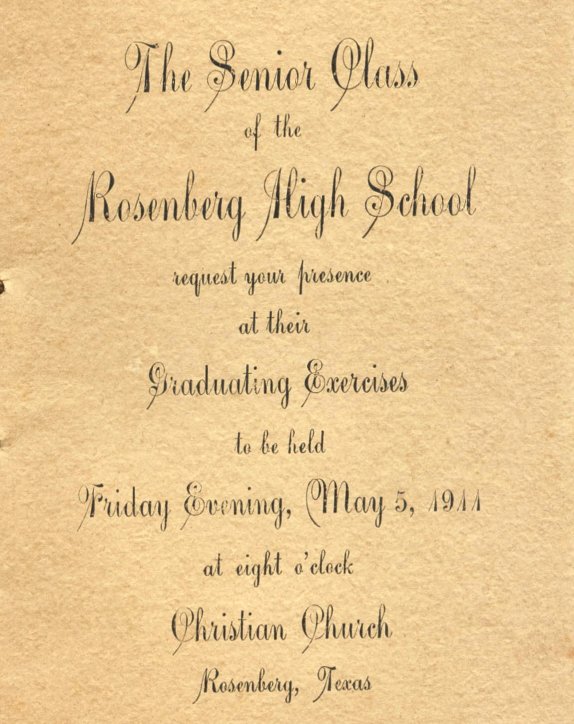 The Senior Class
of the
Rosenberg High School
request your presence
at their
Graduating Exercises
to be held
Friday Evening, May 5, 1911
at eight o'clock
Christian Church
Rosenberg, Texas